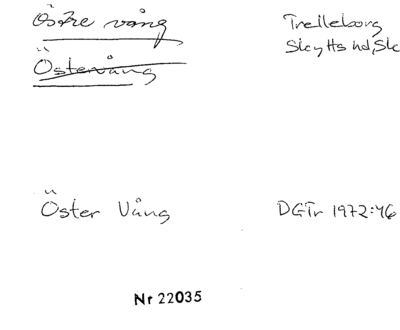 Östre vång
Trelleborg
Skytts hd, Sk
Östervång
Öster Vång
DGTr 1972:46
Nr 22035